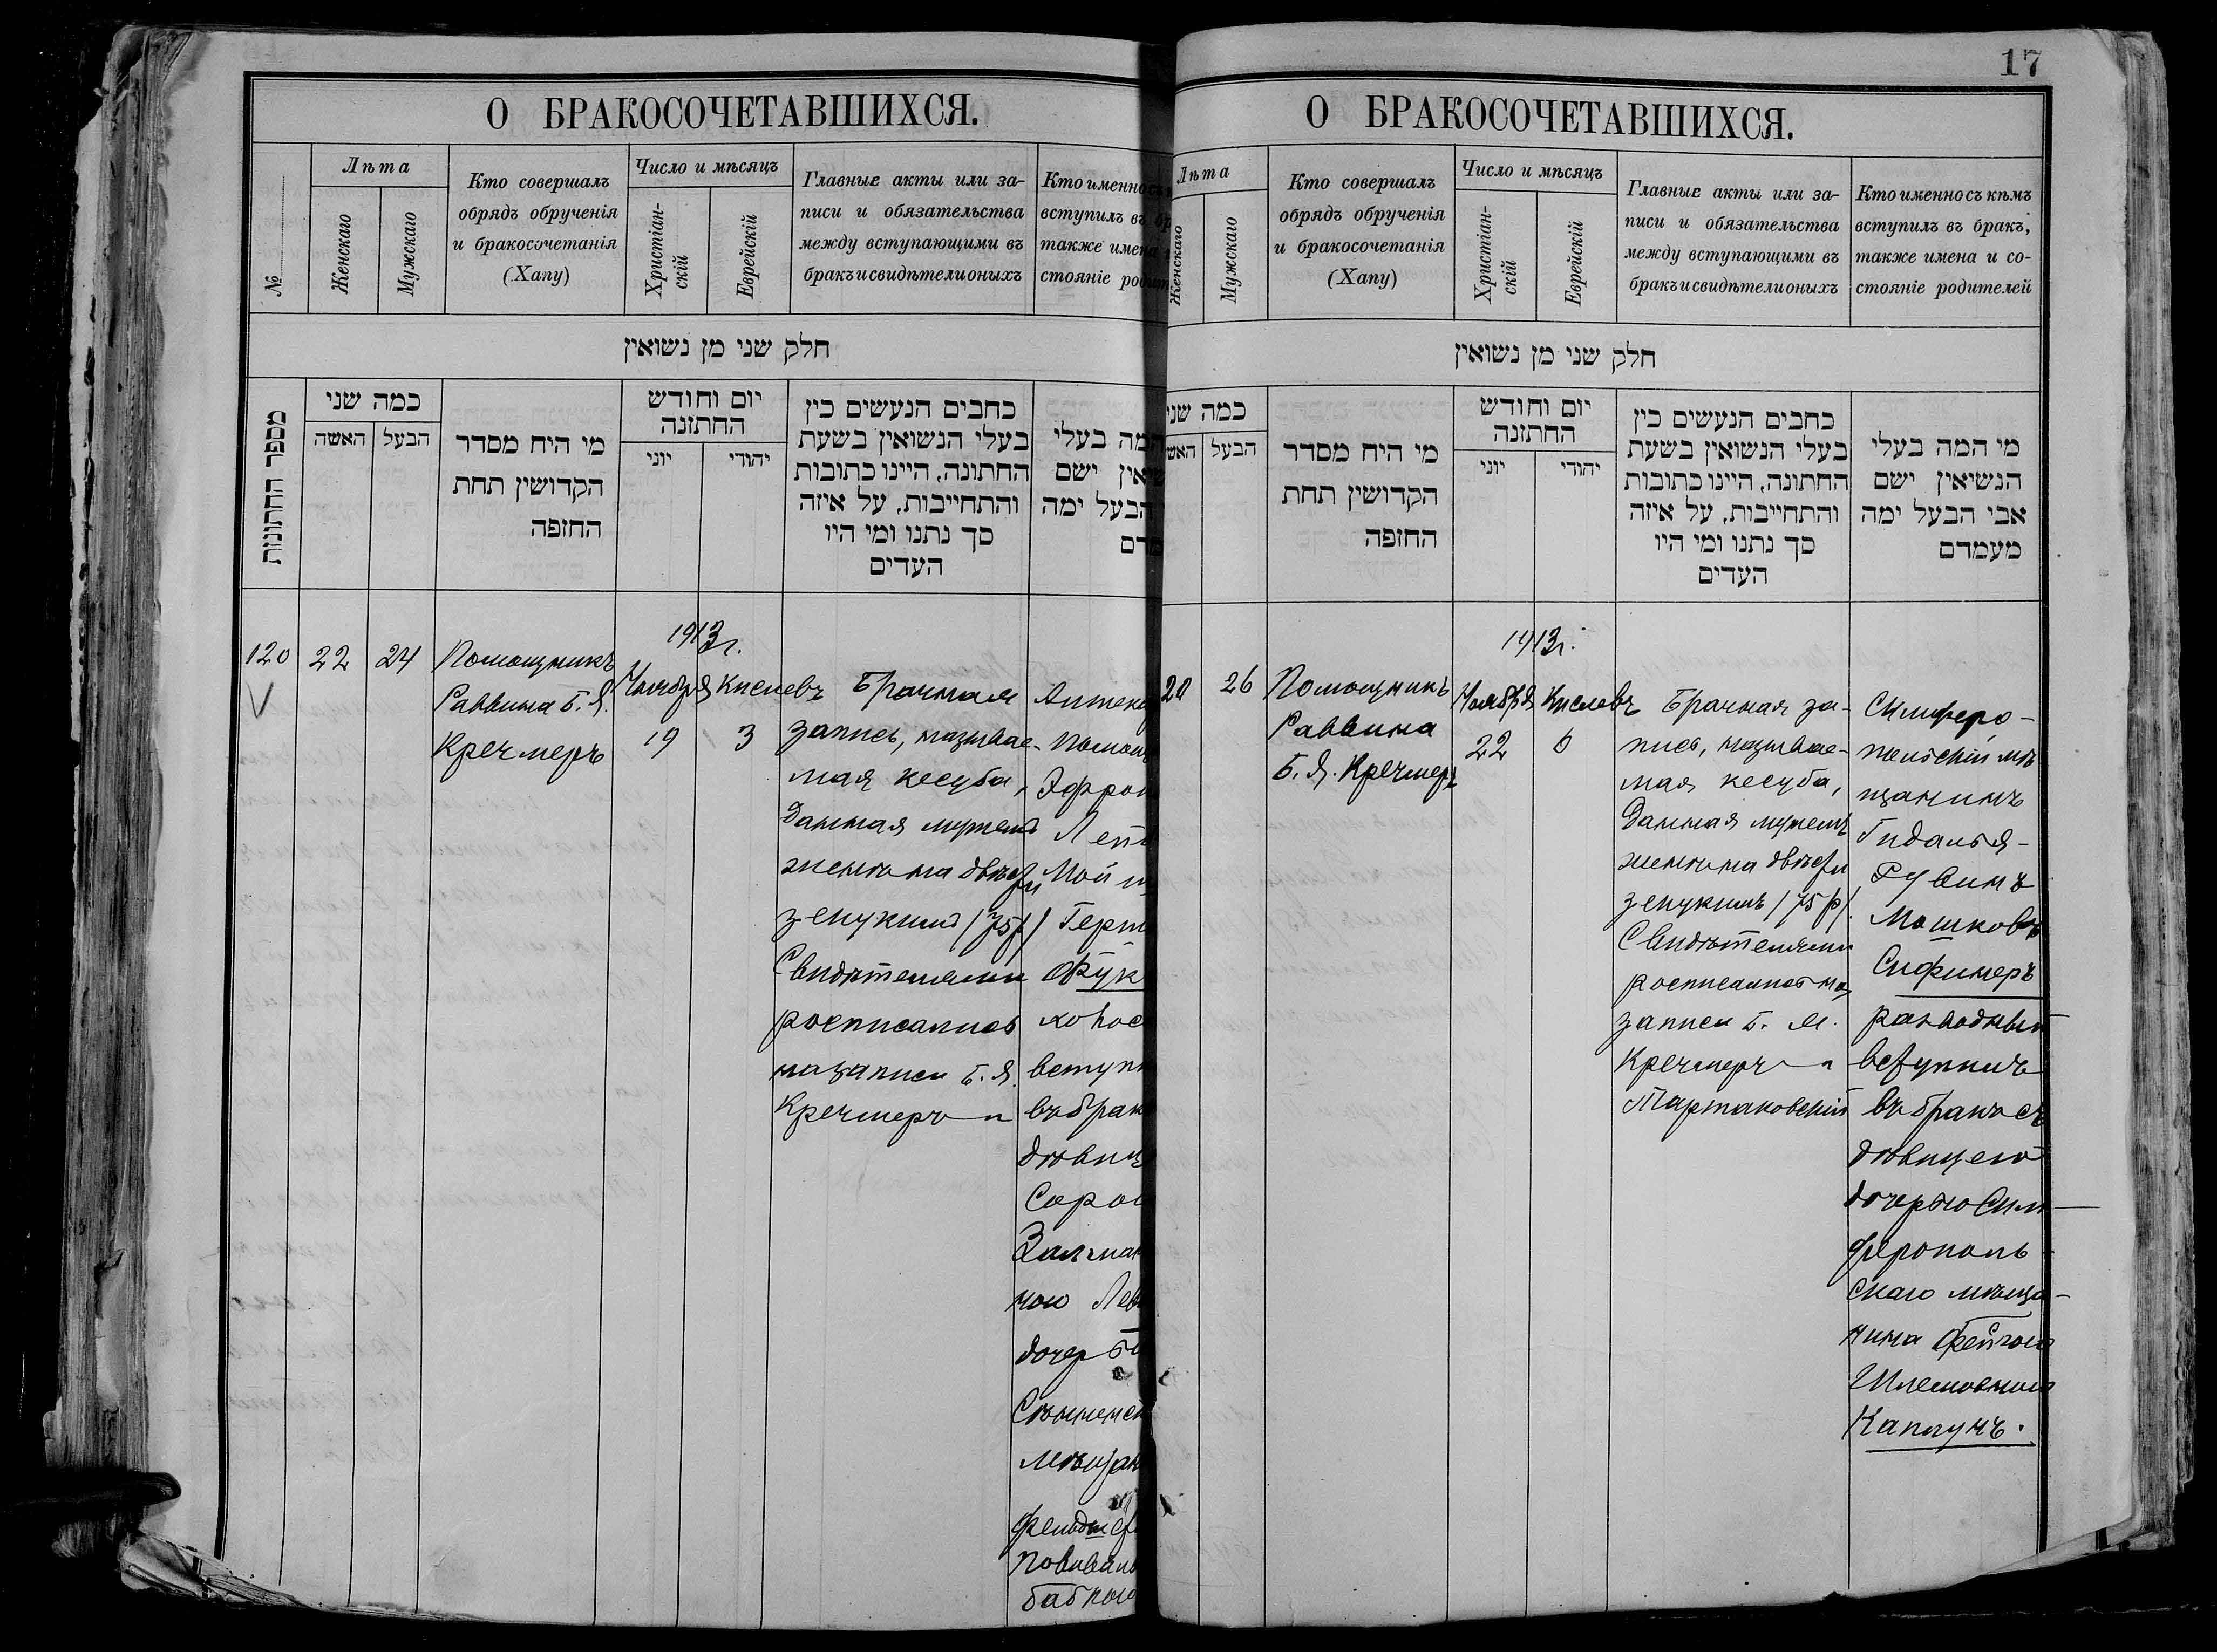 17
О БРАКОСОЧЕТАВШИХСЯ.
№
Лѣта
Женскаго
Мужскаго
Кто совершалъ
обрядъ обрученія
и бракосочетанія
(Хапу)
Число и мѣсяцъ
Христіан-
скій
Еврейскій
Главные акты или за-
писи и обязательства
между вступающими въ
бракъ и свидѣтели оныхъ
Кто именно
вступилъ въ
также имена
стояніе
חלק שני מן נשואין
מספר החתונות
כמה שני
האשה
הבעל
מי היח מסדר
הקדושין תחת
החזפה
יום וחודש
החתזנה
יוני
יהודי
כחבים הנעשים כין
בעלי הנשואין בשעת
החתונה, היינו כתובות
והתחייבות, על איזה
סך נתנו ומי היו
העדים
המה בעלי
ישם
הבעל ימה
120
22
24
Помощникъ
Раввина Б. Я.
Кречмеръ
1913 г.
Ноября
19
Кислевъ
3
Брачная
запись, называе-
мая кесуба,
данная мужемъ
женѣ на двѣсти
зенукимъ (75 р)
Свидѣтелями
росписались
на записи Б. Я.
Кречмеръ и
Вступи
въ бракъ
дѣвиц
Сарою
Залман
ною Лев
дочерью
мѣщан
фельдшер
повивальн
бабкою
О БРАКОСОЧЕТАВШИХСЯ.
Лѣта
Женскаго
Мужскаго
Кто совершалъ
обрядъ обрученія
и бракосочетанія
(Хапу)
Число и мѣсяцъ
Христіан-
скій
Еврейскій
Главные акты или за-
писи и обязательства
между вступающими въ
бракъ и свидѣтели оныхъ
Кто именно съ кѣмъ
вступилъ въ бракъ,
также имена и со-
стояніе родителей
חלק שני מן נשואין
כמה שני
הבעל
מי היח מסדר
הקדושין תחת
החזפה
יום וחודש
החתזנה
יוני
יהודי
כחבים הנעשים כין
בעלי הנשואין בשעת
החתונה, היינו כתובות
והתחייבות, על איזה
סך נתנו ומי היו
העדים
מי המה בעלי
הנשיאין ישם
אבי הבעל ימה
מעמדם
20
26
Помощникъ
Раввина
Б. Я. Кречмеръ
1913 г.
Ноября
22
Кислевъ
6
Брачная за-
пись, называе-
мая кесуба,
данная мужемъ
женѣ на двѣсти
зенукимъ (75 р).
Свидѣтелями
росписались на
записи Б. Я.
Кречмеръ и
Тартаковскій
Симферо-
польскій мѣ
щанинъ
Гидалья-
Рувинъ
Мошковъ
Сифнеръ
разводный
вступилъ
въ бракъ съ
дѣвицею
дочерью Сим-
ферополь-
скаго мѣща-
нина Фейгою
Шлемовною
Каплунъ.